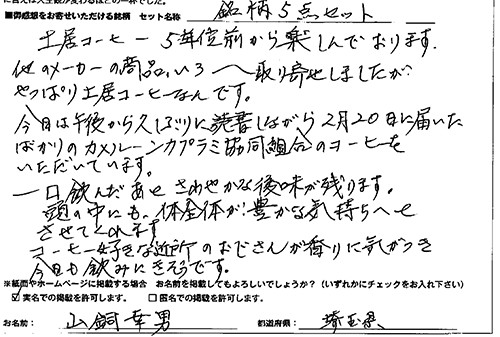 に言えば人生観が変わるほどの一杯でした。
■御感想をお寄せいただける銘柄 セット名称 銘柄5点セット
土居コーヒー 5年位前から楽しんでおります。
他のメーカーの商品いろへ取り寄せしましたが
やっぱり土居コーヒーなんです。
今日は午後から久しぶりに読書しながら2月20日に届いた
ばかりのカメルーンカプラミ協同組合のコーヒーを
いただいています。
一口飲んだあとさわやかな後味が残ります。
頭の中にも、体全体が豊かな気持ちへと
させてくれます
コーヒー好きな近所のおじさんが香りに気がつき
今日も飲みにきそうです。
※紙面やホームページに掲載する場合 お名前を掲載してもよろしいでしょうか?(いずれかにチェックをお入れ下さい)
☑ 実名での掲載を許可します。 □ 匿名での掲載を許可します。
お名前: 山銅幸男 都道府県: 埼玉県